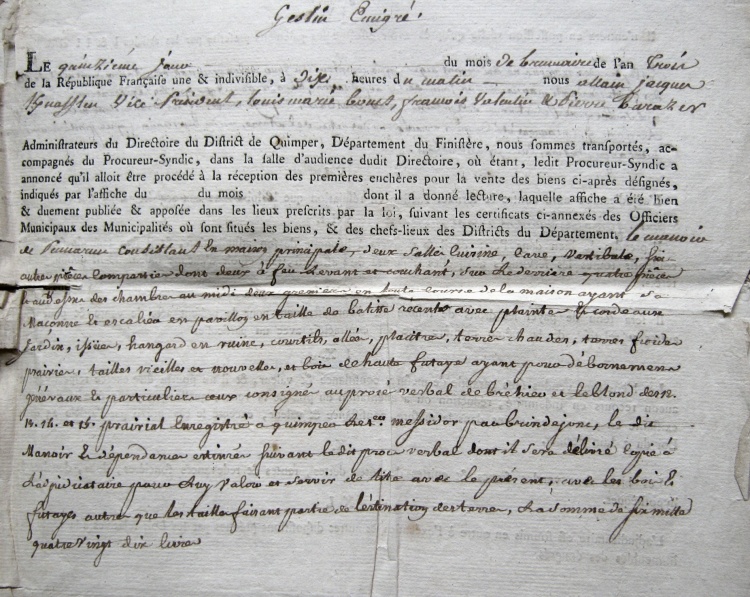 Gestin Emigré.
LE quinzieme jour du mois de brumaire de l'an Trois
de la République Française une & indivisible, à dix heures du matin nous allain jacques
Vice Président, Louis marié Bonet, françois Valentin & Pierre
Administrateurs du Directoire du District de Quimper, Département du Finistère, nous sommes transportés, ac-
compagnés du Procureur-Syndic, dans la salle d'audience dudit Directoire, où étant, ledit Procureur-Syndic a
annoncé qu'il alloit être procédé à la réception des premières enchères pour la vente des biens ci-après désignés,
indiqués par l'affiche du du mois dont il a donné lecture, laquelle affiche a été bien
& duement publiée & apposée dans les lieux prescrits par la loi, suivant les certificats ci-annexés des Officiers
Municipaux des Municipalités où sont situés les biens, & des chefs-lieux des Districts du Département, le manoir
de Penmarun Consistant En maison principale, deux salle Cuisine, Cave, Vestibule,
autre pièces dont deux à feu Levant et couchant, sur Le derrière quatre pièces
et au des chambre au midi deux premiere en toute de la maison ayant sa
Maçonne & escalier en pavillon en taille de batisse recente avec plainte & cordeaux
jardin, issües, hangard en ruine, courtils, allée, placitre, terre chaudes, terres froide
prairie, tailles vieilles et nouvelles, et bois de haute futaye ayant pour débornement
généraux & particulier ceux consigné au prosé verbal de bréhier et leblond des 12.
13. 14. et 15. prairial Enregistré à quimper le messidor par brindejonc, le dit
Manoir & dépendance estimée suivant le dit proc verbal dont il sera délivré copie à
L'adjudicataire pour Luy valoir et servir de titre avec le présent, avec les bois &
futayes autre que les taille faisant partie de l'estimation des terre, La somme de six mille
quatre vingt dix livre